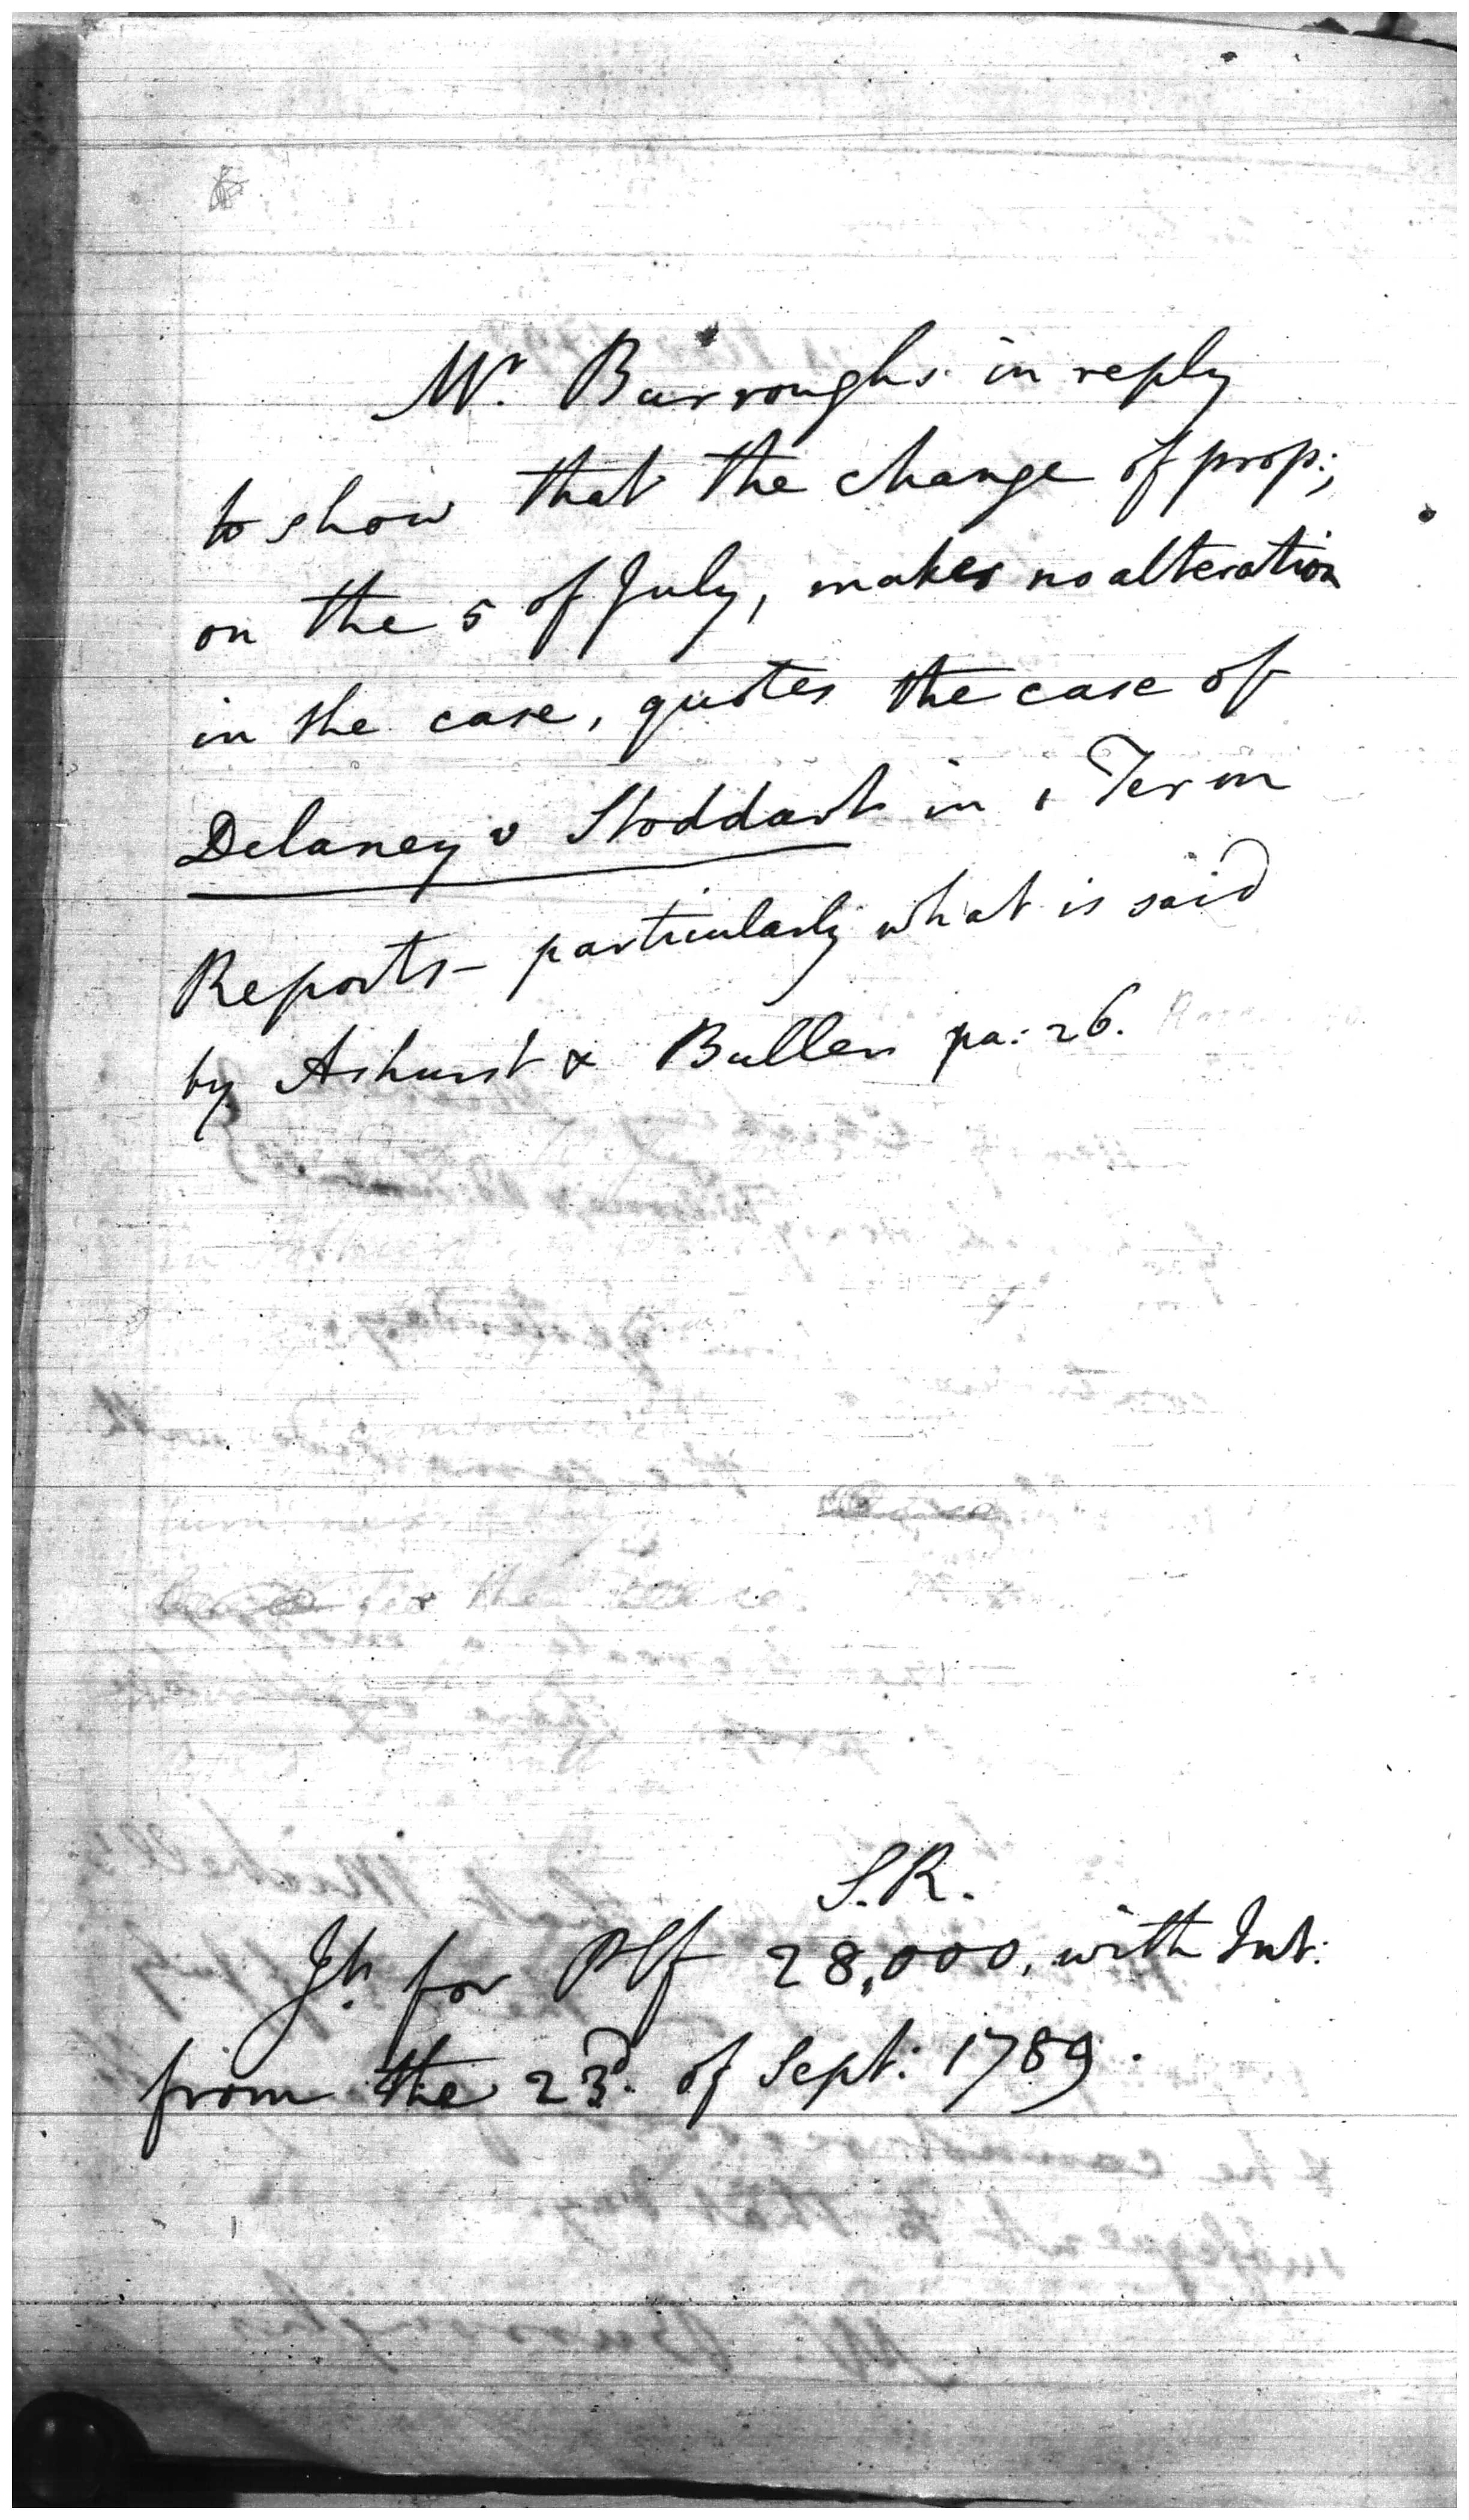 Mr. Burroughs in reply
to show that the change of prop:;
on the 5 of July, makes no alteration
in the case, quotes the case of
Delaney v Stoddart in 1 Term
Reports - particularly what is said
by Ashurst & Buller pa: 26.
S.R.
Jt. for Plf 28,000, with Int:
from the 23d. of Sept: 1789.